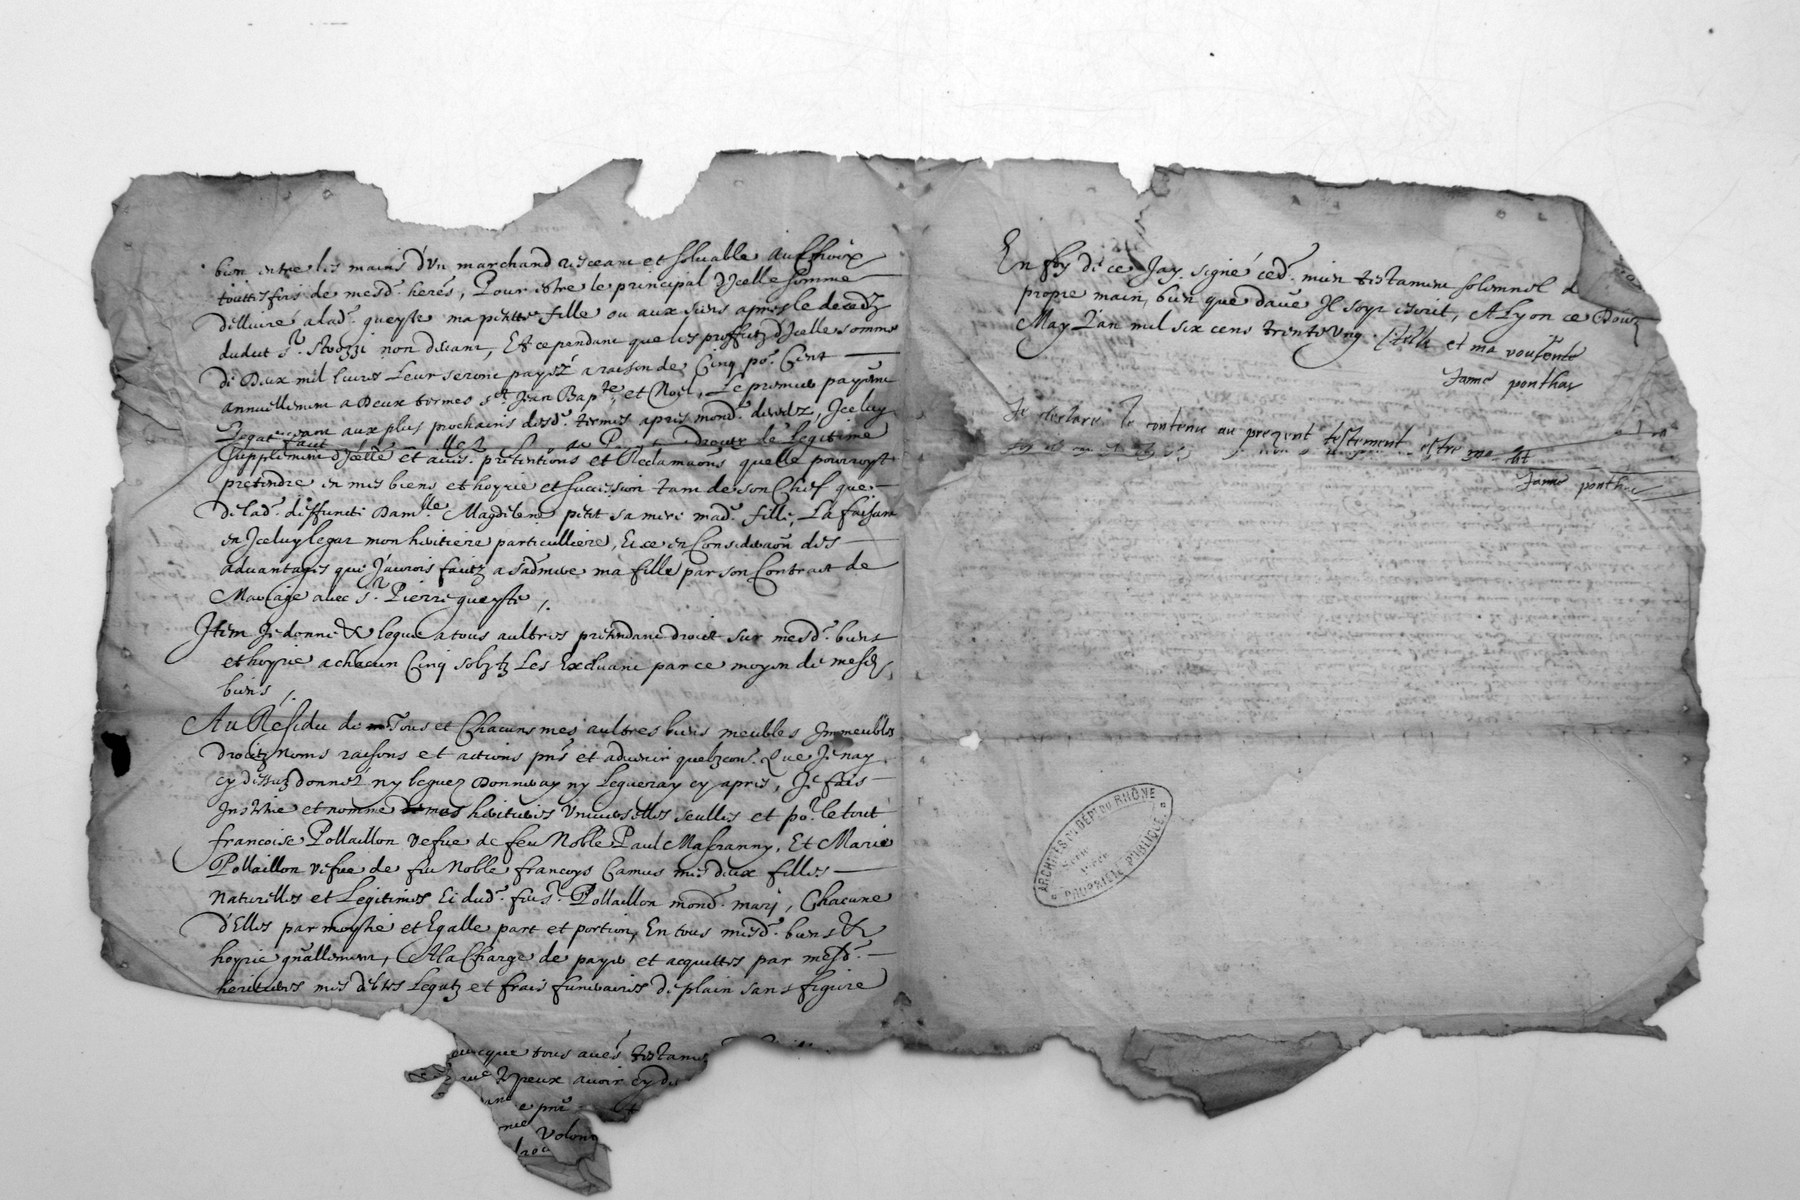 bien entre les mains d'un marchand resceant et solvable Au Choix
touttesfois de mesd. heres, Pour estre le principal d'Jcelle somme
delivré a lad. queyste ma petitte fille ou aux siens apres le decedz
dudit Sr. Strozzi non devant, Et cependant que les proffitz d'Jcelle somme
de Deux mil livres Leur seront payez a raison de Cinq por. Cent
annuellement a Deux termes st. Jean Bapte. et Noel, Le premier payemt
eschant aux plus prochains desd. termes apres mond. decedz, Jceluy
Legat faict
supplement d'Jcelle et aues. pretentions et Reclamaons quelle pourroyt
pretendre en mes biens et hoyrie et succession tant de son Chef que
de lad. deffuncte Damlle. Magdelene petit sa mere mad. fille, La faisant
en Jceluy legat mon heritiere particulliere, Et ce en Consideraon des
advantages que J'aurois faictz a sad mere ma fille par son Contract de
Mariage avec sr. Pierre queyste /.
Jtem Je donne & legue a tous aultres pretendant droict sur mesd. biens
et hoyrie a chacun Cinq solz tz Les Excluant par ce moyen de mesd.
biens /.
Au Résidu de Tous et Chacuns mes aultres biens meubles Jmmeubles
droictz noms raisons et actions pns et advenir quelzconq. Que Je nay
cy dessuz donnez ny leguez Donneray ny Legueray cy apres, Je fais
Jnstitue et nomme mes heritieres Universelles seulles et por. le tout
francoise Pollaillon vefue de feu Noble Paul Mascranny, Et Marie
Pollaillon vefue de feu Noble francoys Camus mes deux filles
Naturelles et Legitimes Et dud. feu sr. Pollaillon mond. mary, Chacune
d'Elles par moytié et Egalle part et portion, En tous mesd. biens &
hoyrie gnallement, A la Charge de payer et acquitter par mesd.
heritieres mes debtes Legatz et frais funeraires de plain sans figure
tous aues testamens
peux avoir cy de
e pnt
Volon
En foy de ce Jay signé ced. mien testament solemnel d
propre main, bien que daue Jl soyt escrit, A Lyon ce Douz
May L'an mil six cens trente ung. et ma voulente
Jame ponthas
Je desclare le contenu au prezent testement estre ma
Jame ponthas
ARCHIVES DU DÉPt. DU RHÔNE
Série
pièce
PROPRIÉTÉ PUBLIQUE